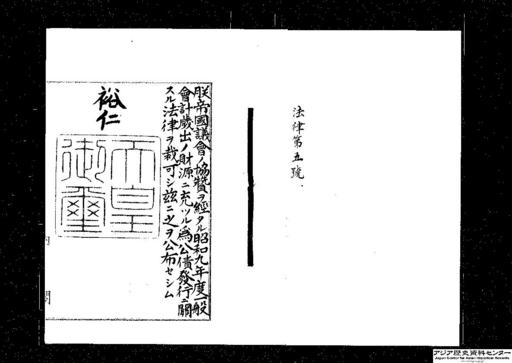 法律第五號
朕帝國議會ノ協贊ヲ經タル昭和九年度一般
會計歲出ノ財源ニ充ツル爲公債發行ニ關
スル法律ヲ裁可シ茲ニ之ヲ公布セシム
裕仁
天皇
御璽
内閣
アジア歴史資料センター
Japan Center for Asian Historical Records